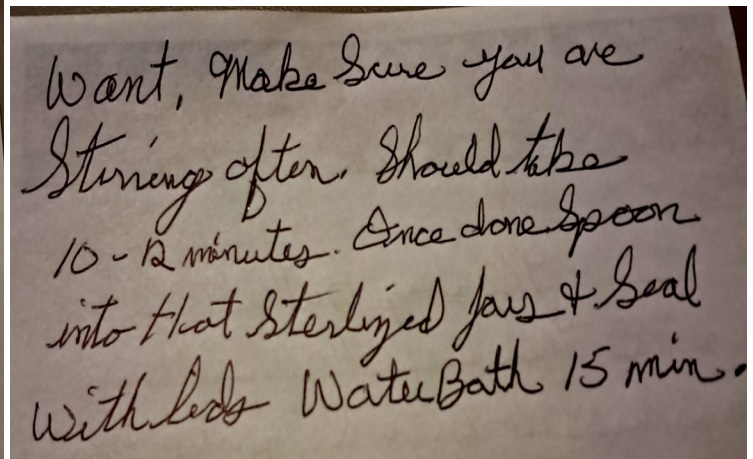 Want, Make Sure you are
Stirring often. Should take
10-12 minutes. Once done Spoon
into Hot Sterlized Jars & Seal
With leds Water Bath 15 min.